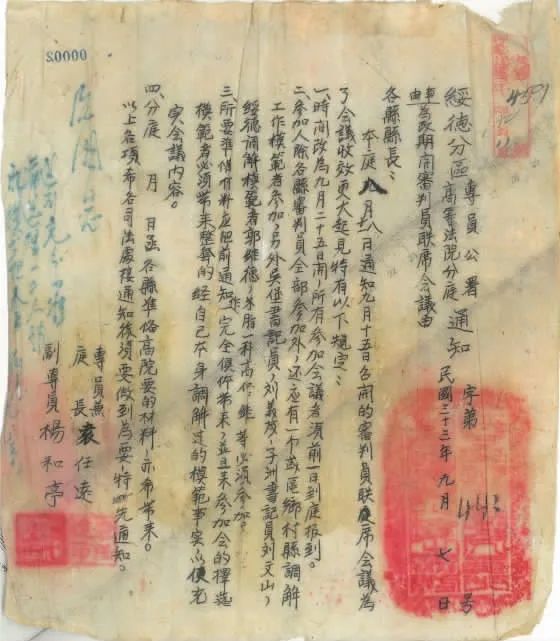 綏德分區 專員公署 高等法院分庭 通知 字第 号
民國三十三年九月七日
事由 為改期開審判員联席會議由
各縣縣長：
本庭八月 日通知九月十五日召開的審判員联席會議為
了會議收效更大起見特有以下規定：
一、時間改為九月二十五日開，所有參加會議者須前一日到庭报到。
二、參加人除各縣審判員全部參加外，还应有一个或區鄉村縣調解
工作模範者參加，另外吳堡書記員刘義茂，子洲書記員刘文山，
綏德調解模範者郭維德，米脂一科高作 等必須參加。
三、所要準俻材料应照前通知完全 俻帶來，並且來參加会的擇选
模範者必須帶來整 的經自己本身調解过的模範事实以便充
实会議内容。
四、分庭 月 日函各縣準俻高院要的材料，亦希帶來。
以上各項希各司法處接通知後須要做到為要，特 先通知。
專員兼
庭長袁任遠
副專員楊和亭